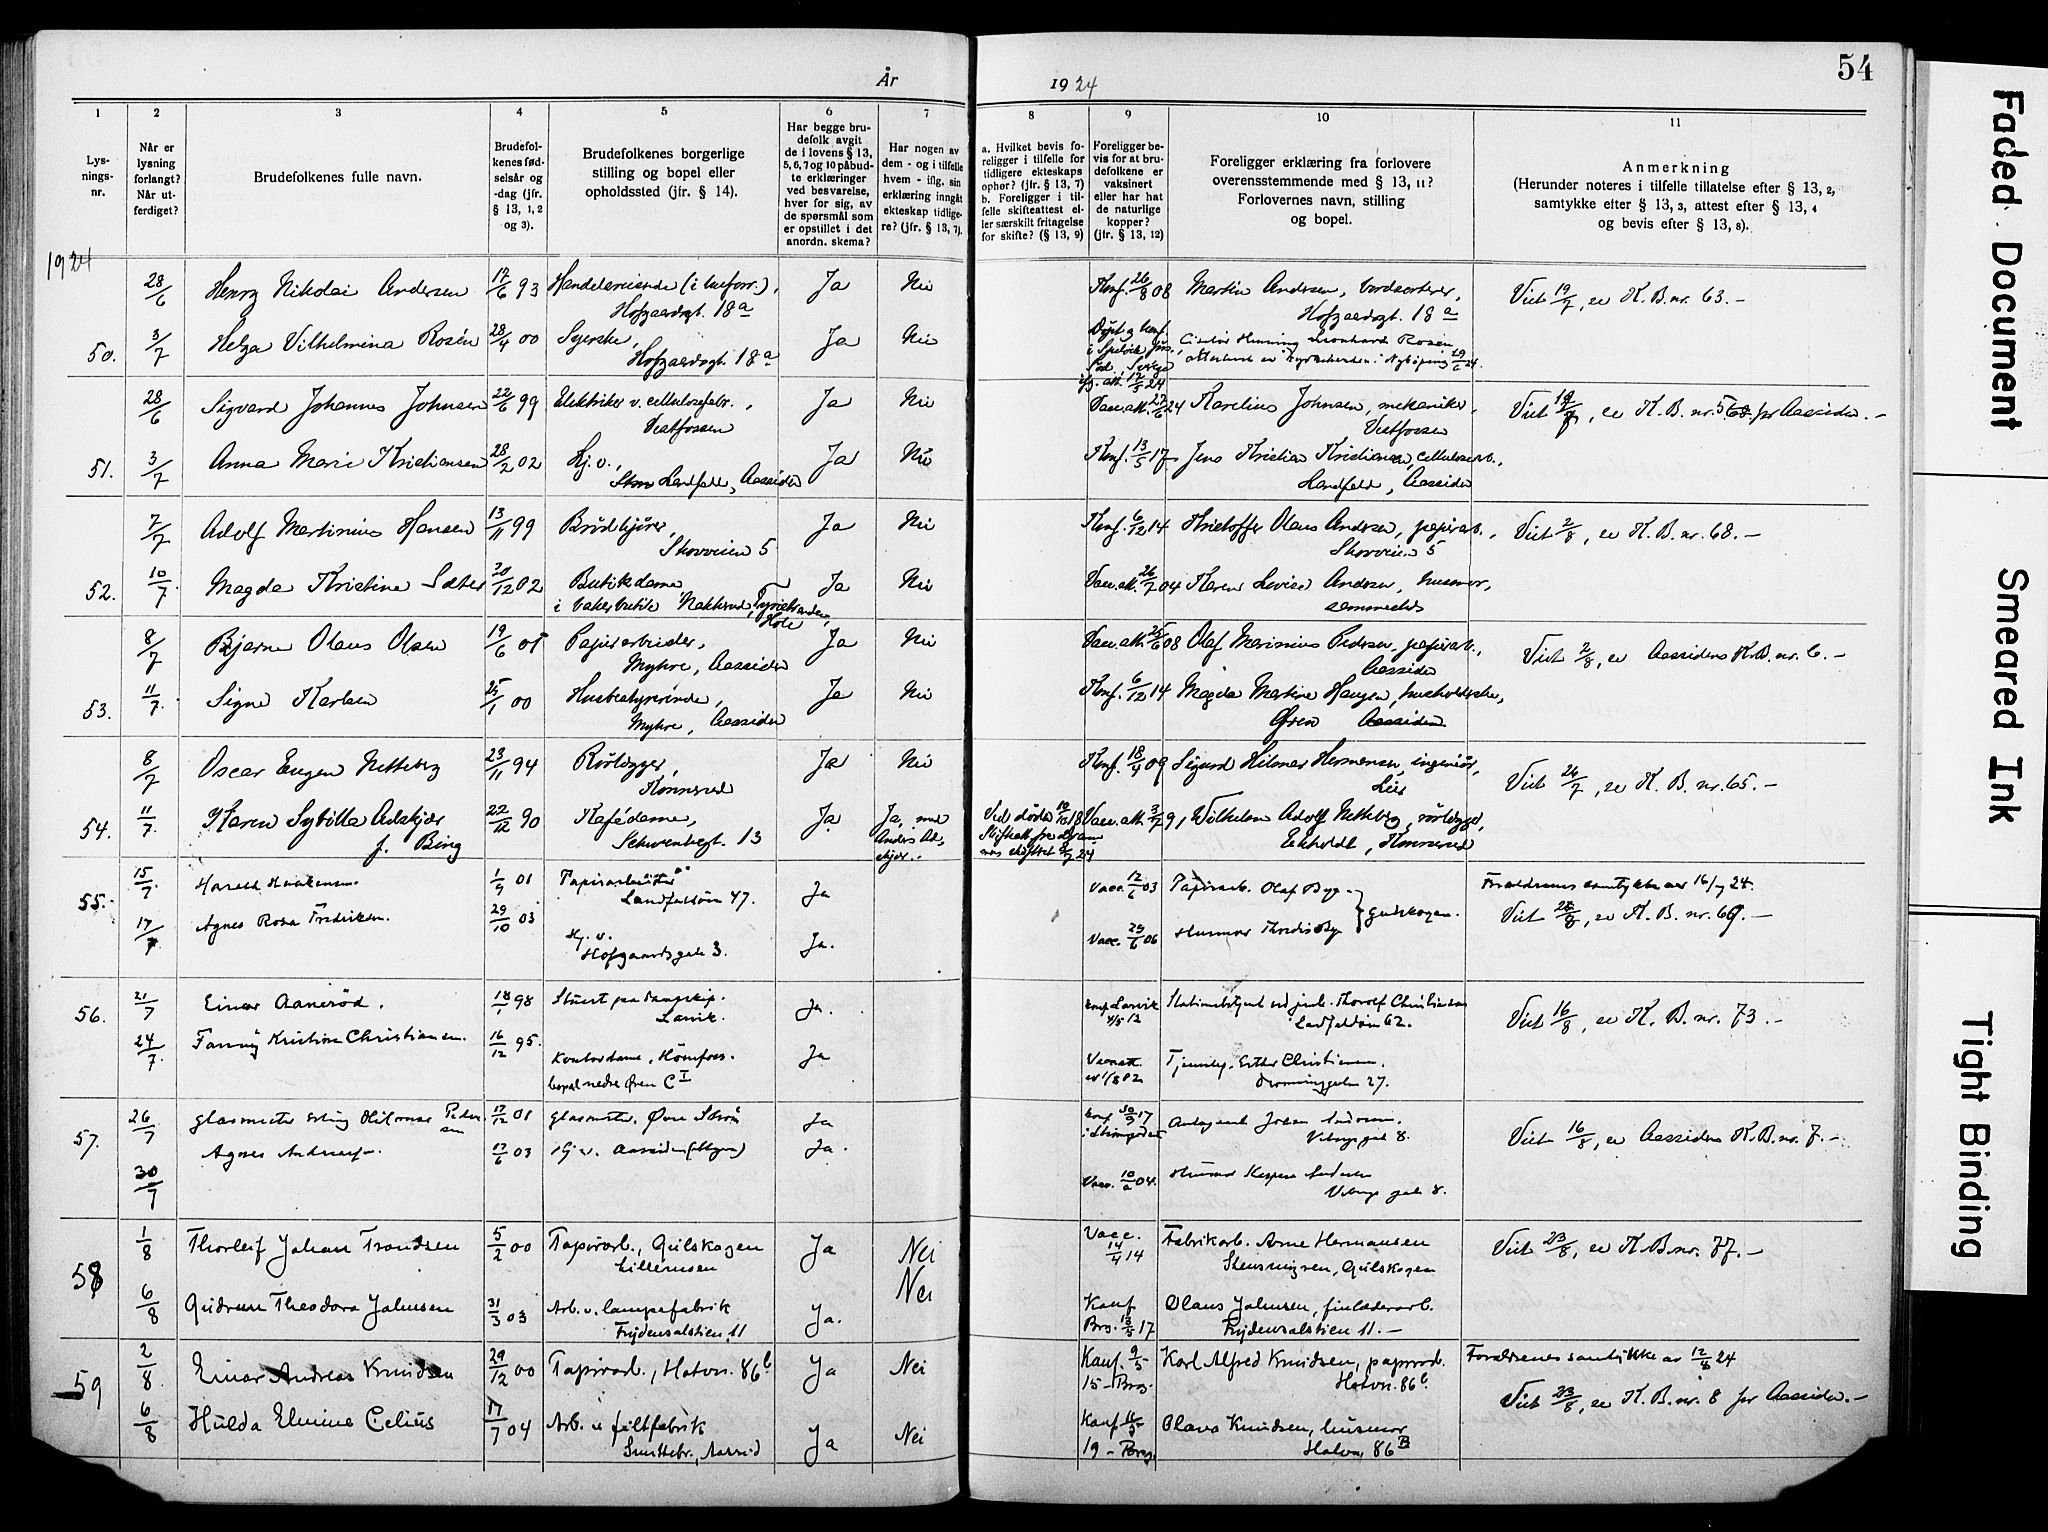 54
År 1924
1
2
3
4
5
6
7
8
9
10
11
Lys-
nings-
nr.
Når er
lysning
forlangt?
Når ut-
ferdiget?
Brudefolkenes fulle navn.
Brudefol-
kenes fød-
selsår og
-dag (jfr.
§ 13, 1, 2
og 3).
Brudefolkenes borgerlige
stilling og bopel eller
opholdssted (jfr. § 14).
Har begge bru-
defolk avgit
de i lovens § 13,
5, 6, 7 og 10 påbud-
te erklæringer
ved besvarelse,
hver for sig, av
de spørsmål som
er opstillet i det
anordn. skema?
Har nogen av
dem - og i tilfelle
hvem - iflg. sin
erklæring inngåt
ekteskap tidlige-
re? (jfr. § 13, 7).
a. Hvilket bevis fo-
religger i tilfelle for
tidligere ekteskaps
ophør? (jfr. § 13, 7)
b. Foreligger i til-
felle skifteattest el-
ler særskilt fritagelse
for skifte? (§ 13, 9)
Foreligger be-
vis for at bru-
defolkene er
vaksinert
eller har hat
de naturlige
kopper?
(jfr. § 13, 12)
Foreligger erklæring fra forlovere
overensstemmende med § 13, 11?
Forlovernes navn, stilling
og bopel.
Anmerkning
(Herunder noteres i tilfelle tillatelse efter § 13, 2,
samtykke efter § 13, 3, attest efter § 13, 4
og bevis efter § 13, 8).
1924
28/6 Henry Nikolai Andersen 17/6 93 Handelsreisende Ja Nei Konf. 26/8 08 Martin Andersen, bordsorterer, Viet 19/7, se K. B. nr. 63. -
Hofgaardsgt. 18a Hofgaardsgt. 18a
50. 3/7 Helga Vilhelmina Rosén 28/4 00 Syerske, Ja Nei Henning Leonhard Rosen
Hofgaardsgt. 18a
28/6 Sigvard Johannes Johnsen 22/6 99 Elektriker v. cellulosefabr., Ja Nei Vacc.att. 27/6 24 Karelius Johnsen, mekaniker, Viet 19/7, se K. B. nr. 5 for Aassiden. -
Vestfossen Vestfossen
51. 3/7 Anna Marie Kristiansen 28/2 02 Hj. v., Ja Nei Konf. 13/5 17 Jens Kristian Kristiansen, cellulosearb.,
Landfald, Aassiden Landfald, Aassiden
7/7 Adolf Martinius Hansen 13/11 99 Brødkjører, Ja Nei Konf. 6/12 14 Kristoffer Olaus Andersen, papirarb., Viet 2/8, se K. B. nr. 68. -
Skovveien 5 Skovveien 5
52. 10/7 Magda Kristine Sæter 20/12 02 Butikdame Ja Nei Vacc.att. 26/7 04 Karen Lovise Andersen, husmor,
i bakerbutik Nakkerud, Tyristranden, Hole sammesteds
8/7 Bjarne Olaus Olsen 19/6 01 Papirarbeider, Ja Nei Vacc.att. 25/6 08 Olaf Marinius Pedersen, papirarb., Viet 2/8, se Aassidens K. B. nr. 6. -
Myhre, Aassiden Aassiden
53. 11/7 Signe Karlsen 25/1 00 Husbestyrerinde, Ja Nei Konf. 6/12 14 Magda Martine Haugen, husholdske,
Myhre, Aassiden Øren Aassiden
8/7 Oscar Eugen Netteberg 23/11 94 Rørlægger, Ja Nei Konf. 18/4 09 Sigurd Hilmar Hermansen, ingeniør, Viet 24/7, se K. B. nr. 65. -
Konnerud Lier
54. 11/7 Karen Sybilla Adskjær 22/12 90 Kafédame, Ja Ja, med Vacc.att. 3/7 91 Wilhelm Adolf Netteberg, rørlægger,
f. Bing Schwenckegt. 13 Anders Ad- Ekholdt, Konnerud
skjær.
55. 15/7 Harald Haakensen. 1/9 01 Papirarbeider Ja Vacc. 12/6 03 Papirarb. Olaf Bye Gulskogen. Forældrenes samtykke av 16/7 24.
Landfaldøen 47.
17/7 Agnes Rosa Fredriksen. 29/10 03 Hj. v. Ja. Vacc. 23/6 06 Husmor Thordis Bye Viet 28/8, se K. B. nr. 69. -
Hofgaardsgate 3.
56. 21/7 Einar Aanerød. 18/1 98 Stuert paa Ja. Konf. Larvik Thorolf Christiansen Viet 16/8, se K. B. nr. 73. -
Larvik. 4/5 13 Landfaldøn 62.
24/7 Fanny Kristine Christiansen. 16/12 95. Kontordame, Hønefoss. Ja Tjenestep. Esther Christiansen.
bopæl nedre Øren C I Dronninggaten 27.
57. 26/7 glasmester Erling Hilmar Peder- 17/12 01 glasmester. Øvre Ja Konf. 30/9 17 Johan Andersen. Viet 16/8, se Aassidens K. B. nr. 7. -
sen i Strømsgodset Viborgs gate 8.
Agnes Andersen. 17/6 03 Hj. v. Aassiden Ja.
30/7 Vacc. 10/2 04. Husmor Andersen
gate 8.
1/8 Thorleif Johan Trondsen 5/2 00 Papirarb., Gulskogen Ja Nei Vacc. Fabrikarb. Arne Hermansen Viet 23/8, se K. B. nr. 77. -
14/4 14 Gulskogen
58 Nei
6/8 Gudrun Theodora Johnsen 31/3 03 Arb. v. lampefabrik Ja. Konf Olaus Johnsen,
Frydensalstien 11 Brg. 13/5 17 Frydensalstien 11. -
59 2/8 Einar Andreas Knudsen 29/12 00 Papirarb., Hotvn. 86b Ja Nei Konf. 9/5 Karl Alfred Knudsen, papirarb. Forældrenes samtykke av 12/8 24
15 - Brg. Hotvn. 86b.
6/8 Hulda Elvine Celius 17/7 04 Arb. v filtfabrik Ja Nei Konf 11/5 Olava Knudsen, husmor Viet 23/8, se K. B. nr. 8 for Aassiden. -
19 - Brg. Hotvn. 86B
Faded Document
Smeared Ink
Tight Binding